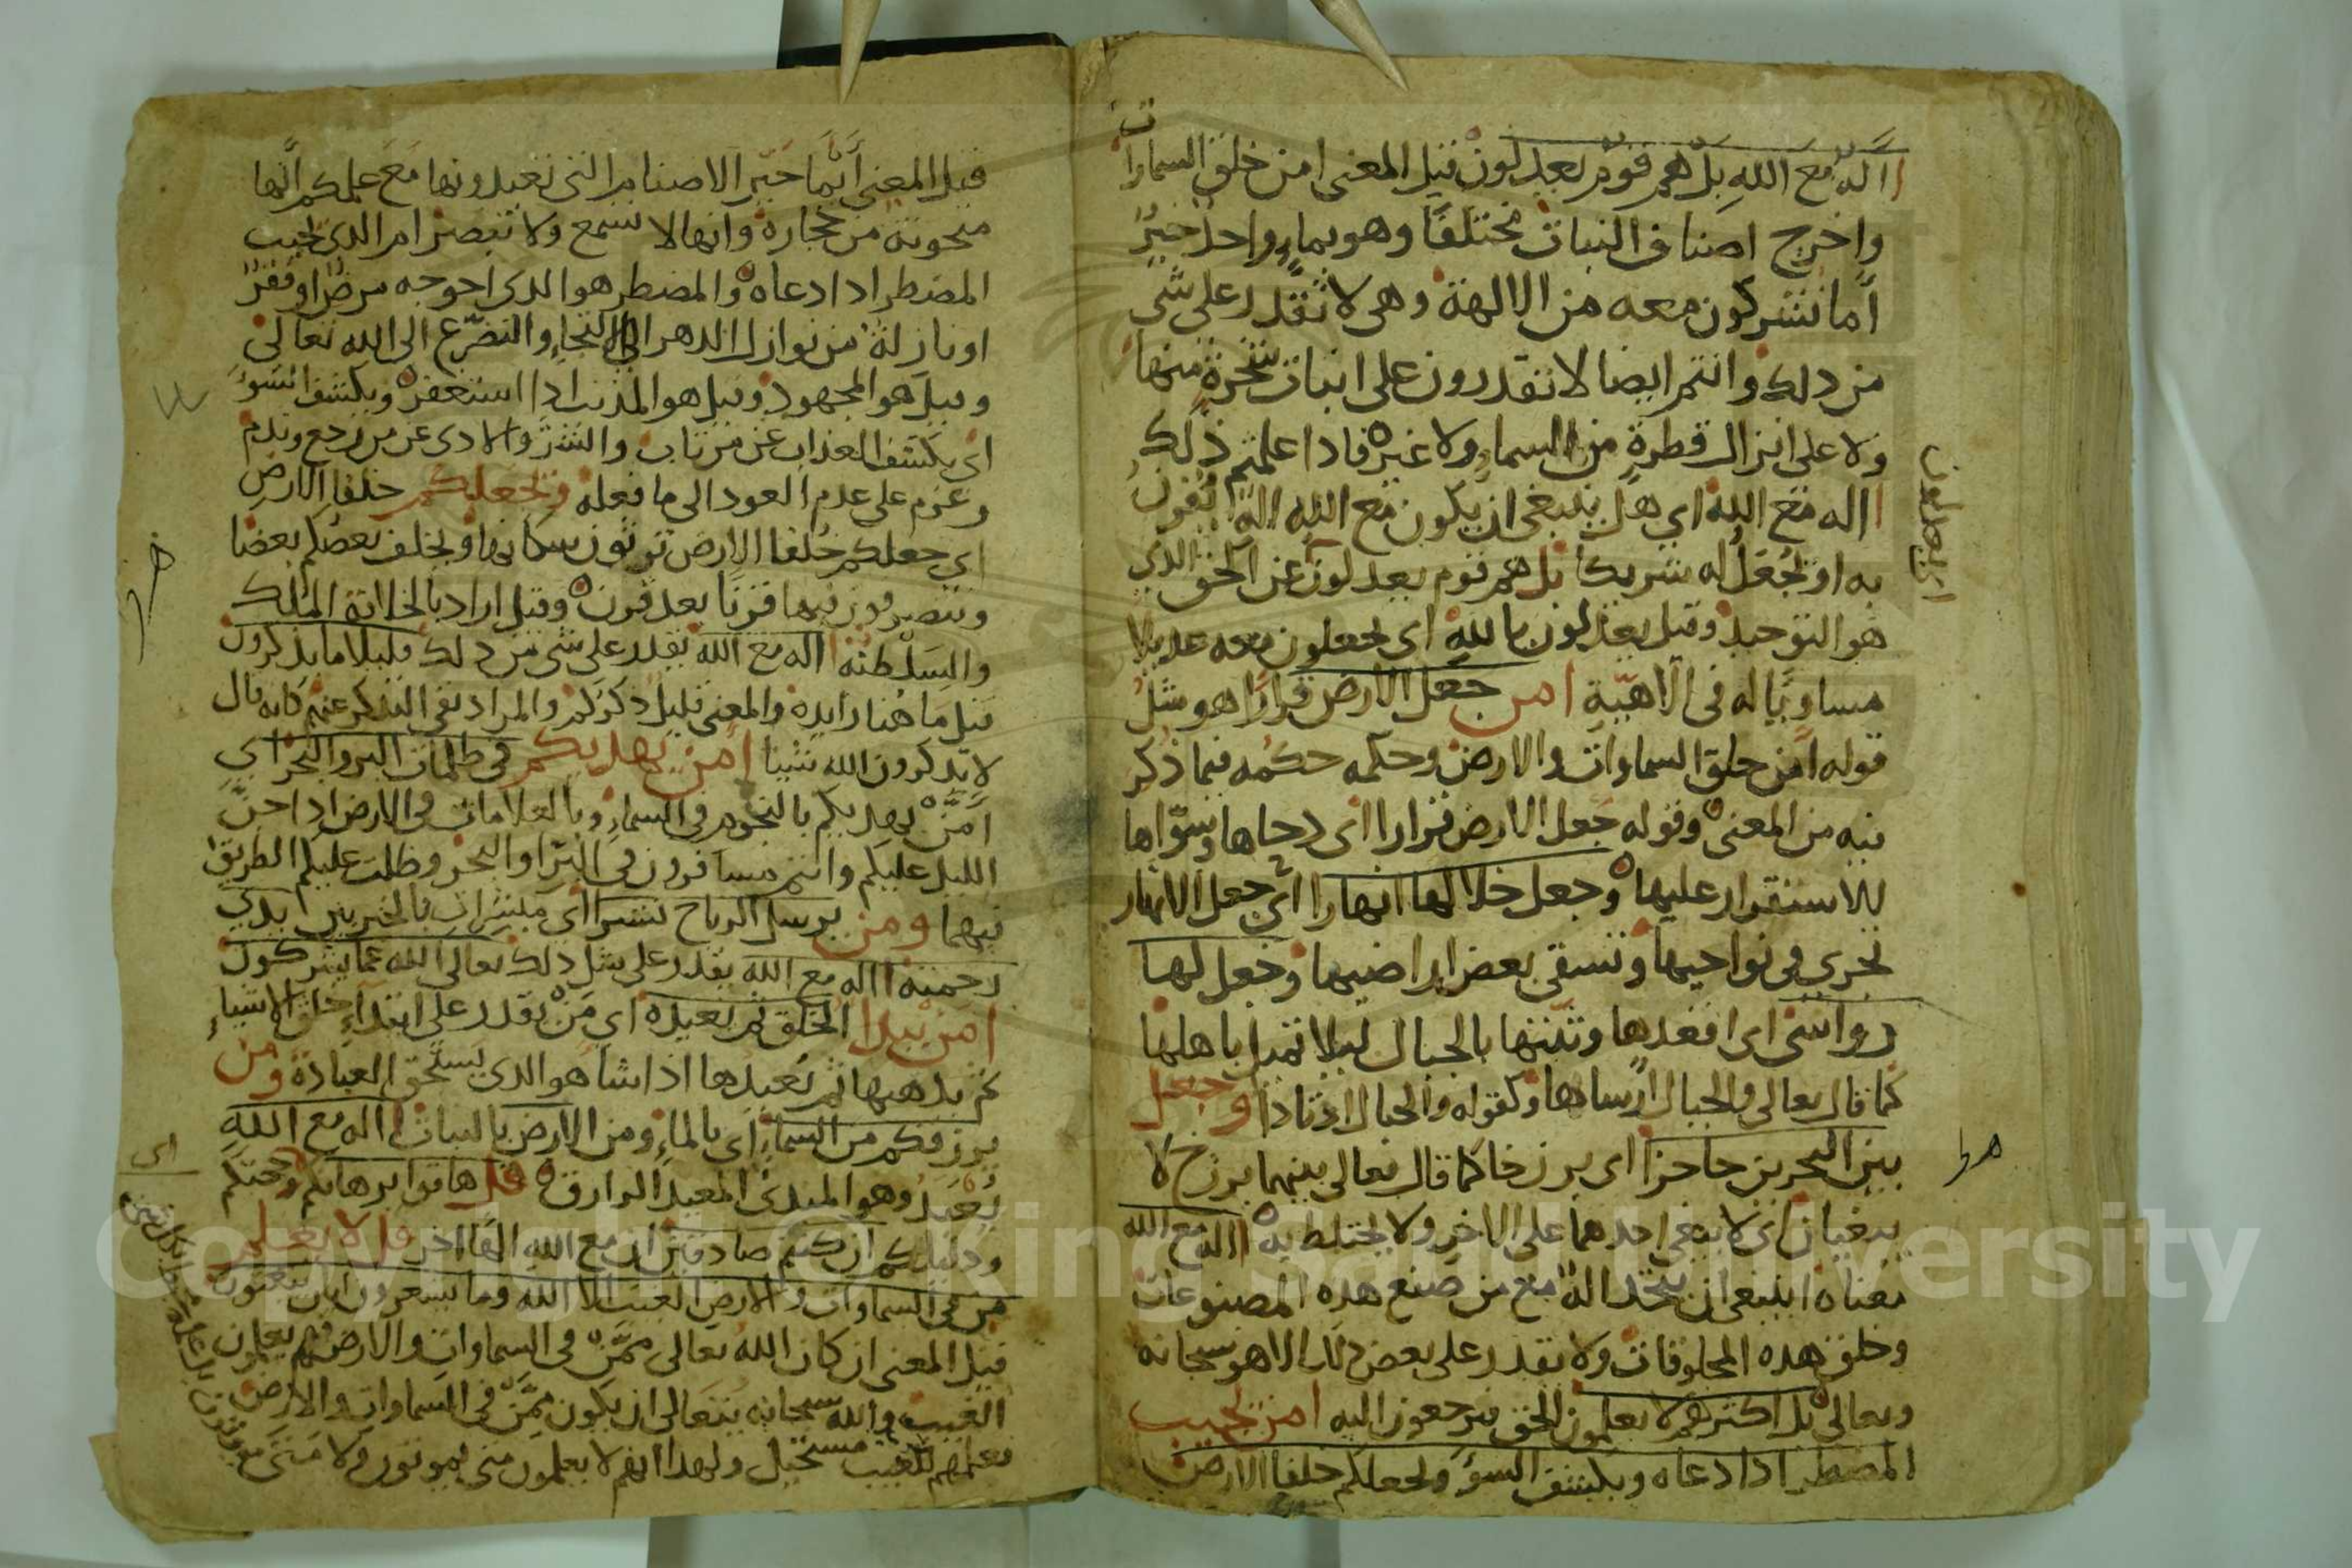 االه مع الله بل هم قوم يعدلون قيل المعنى امن خلق السماوات
واخرج اصناف النبات مختلفا وهو بماء واحد خير
أما تشركون معه من الالهة وهي لا تقدر على شي
من دلك وانتم ايضا لا تقدرون على انبات شجرة منها
ولا على انزال قطرة من السماء ولا غيره فادا علمتم ذلك
االه مع الله اي هل ينبغي ان يكون مع الله اله تقرون
به او تجعل له شريكا بل هم قوم يعدلون عن الحق الدي
هو التوحيد وقيل يعدلون بالله اي يجعلون معه عديلا
اي يعدلون
مساويا له في الاهية امن جعل الارض قرارا هو مثل
قوله امن خلق السماوات والارض وحكمه حكمه فيما ذكر
فيه من المعنى وقوله جعل الارض قرارا اي دحاها وسواها
للاستقرار عليها وجعل خلالها انهارا اي جعل الانهار
تجري في نواحيها وتسقي بعض اراضيها وجعل لها
رواسي اي اقعدها وثبتها بالجبال ليلا تميل باهلها
كما قال تعالى والجبال ارساها وكقوله والجبال اوتادا وجعل
بين البحرين حاجزا اي برزخا كما قال تعالى بينهما برزخ لا
يبغيان اي لا يبغي احدهما على الاخر ولا يختلط به االه مع الله
معناه اينبغي ان يتخد اله مع من صنع هده المصنوعات
وخلق هده المخلوقات ولا يقدر على بعض دلك الا هو سبحانه
وتعالى بل اكثرهم لا يعلمون الحق فيرجعون اليه امن يجيب
المضطر ادا دعاه ويكشف السوء ويجعلكم خلفا الارض
قيل المعنى أيما خير الاصنام التي تعبدونها مع علمكم أنها
منحوتة من حجارة وانها لا تسمع ولا تبصر ام الدي يجيب
المضطر ادا دعاه والمضطر هو الدي احوجه مرض او فقر
او نازلة من نوازل الدهر الى الالتجاء والتضرع الى الله تعالى
وقيل هو المجهود وقيل هو المذنب ادا استغفر ويكشف السوء
اي يكشف العذاب عن من تاب والشر والادى عن من رجع وندم
وعزم على عدم العود الى ما فعله ويجعلكم خلفا الارض
اي جعلكم خلفا الارض ترثون سكانها ويخلف بعضكم بعضا
وتتصرفون فيها قرنا بعد قرن وقيل اراد بالخلافة الملك
والسلطنة االه مع الله يقدر على شي من دلك قليلا ما يذكرون
قيل ما هنا زايده والمعنى قليل ذكركم والمراد نفي التذكر عنهم كانه قال
لا يذكرون الله شيئا امن يهديكم في ظلمات البر والبحر اي
أمن يهديكم بالنجوم في السماء وبالعلامات في الارض ادا جن
الليل عليكم وانتم مسافرون في البر او البحر وظلت عليكم الطريق
فيهما ومن يرسل الرياح نشرا اي مبشرات بالخير بين يدي
رحمته االه مع الله يقدر على مثل دلك تعالى الله عما يشركون
امن يبدا الخلق ثم يعيده اي من يقدر على ابتداء خلق الاشياء
ثم يذهبها ثم يعيدها اذا شا هو الدي يستحق العبادة ومن
يرزقكم من السماء اي بالماء ومن الارض بالنبات االه مع الله
اي
يعبد وهو المبدئ المعيد الرازق قل هاتوا برهانكم وحجتكم
ودليلكم ان كنتم صادقين ان مع الله الها اخر قل لا يعلم
من في السماوات والارض الغيب الا الله وما يشعرون ايان يبعثون
قيل المعنى ان كان الله تعالى ممن في السماوات والارض فهم يعلمون
الغيب والله سبحانه يتعالى ان يكون ممن في السماوات والارض
فعلمهم للغيب مستحيل ولهدا انهم لا يعلمون متى يموتون ولا متى
Copyright © King Saud University